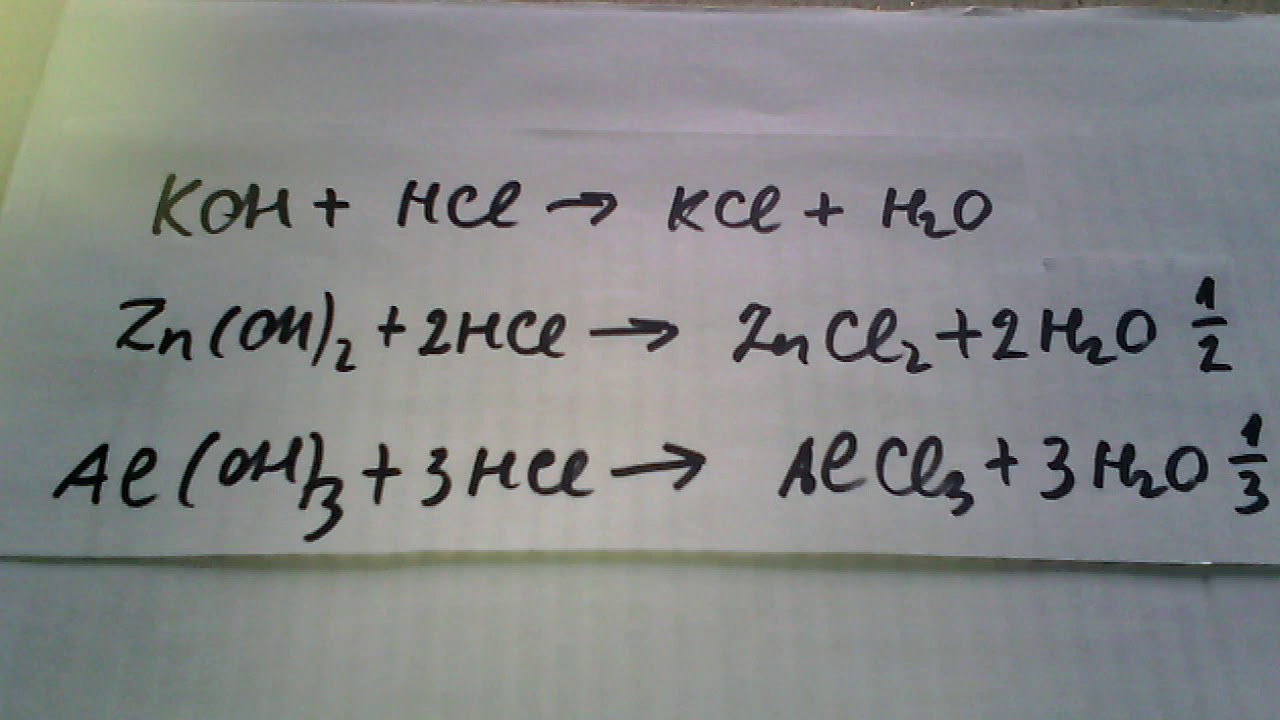 KOH + HCl → KCl + H₂O
Zn(OH)₂ + 2HCl → ZnCl₂ + 2H₂O 1/2
Al(OH)₃ + 3HCl → AlCl₃ + 3H₂O 1/3